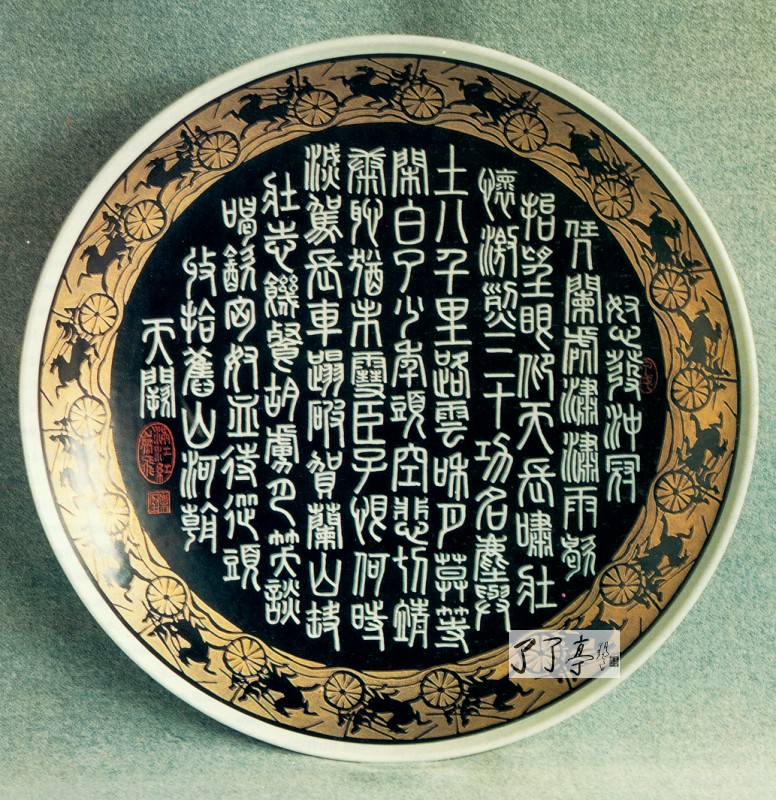 怒發沖冠
凭闌處瀟瀟雨歇
抬望眼仰天長嘯壯
懷激烈三十功名塵與
土八千里路雲和月莫等
閑白了少年頭空悲切靖
康恥猶未雪臣子恨何時
滅駕長車蹋破賀蘭山缺
壯志饑餐胡虜肉笑談
渴飲匈奴血待從頭
收拾舊山河朝
天闕
滿江紅
岳飛
了了亭